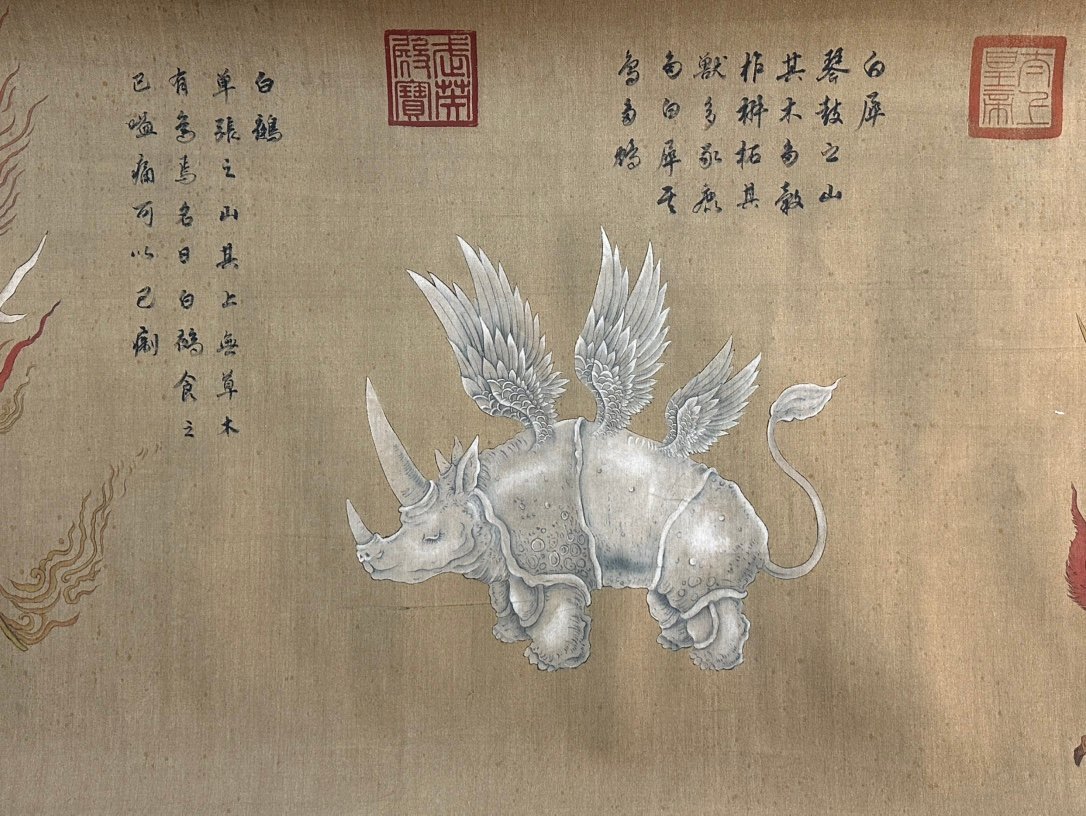 太上
皇帝
白犀
琴鼓之山
其木多榖
柞椒柘其
獸多豕鹿
多白犀其
鳥多鴆
武英
殿寶
白鵺
單張之山其上無草木
有鳥焉名曰白鵺食之
已嗌痛可以已痸